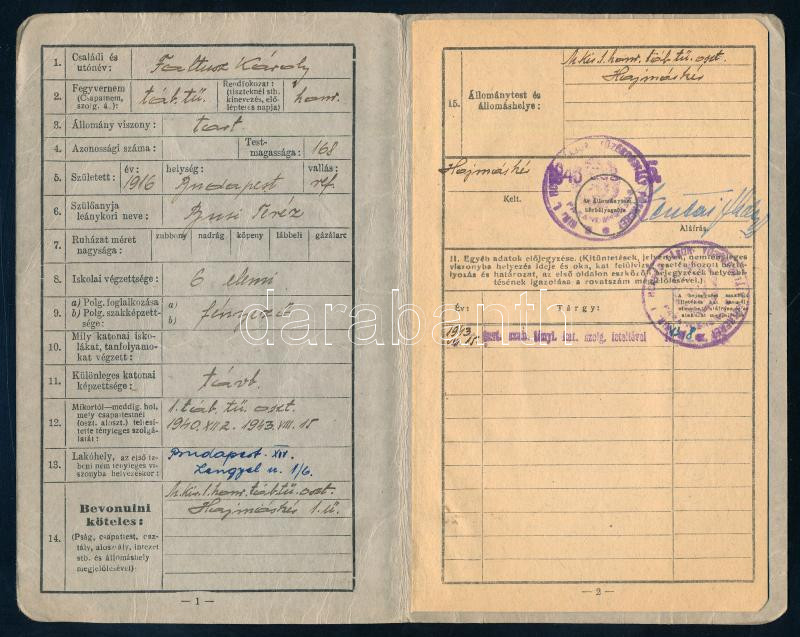 1. Családi és utónév: Faltusz Károly
2. Fegyvernem (Csapatnem, szolg. á.): táb. tü. Rendfokozat: (tiszteknél stb. kinevezés, előléptetés napja) honv.
3. Állomány viszony: tart.
4. Azonossági száma: Testmagassága: 168
5. Született: év: 1916 helység: Budapest vallás: ref.
6. Szülőanyja leánykori neve: Busi Teréz
7. Ruházat méret nagysága: zubbony nadrág köpeny lábbeli gázálarc
8. Iskolai végzettsége: 6 elemi
9. a) Polg. foglalkozása b) Polg. szakképzettsége: a) b) fényező
10. Mily katonai iskolákat, tanfolyamokat végzett:
11. Különleges katonai képzettsége: távb.
12. Mikortól—meddig, hol, mely csapattestnél (oszt. aloszt.) teljesített tényleges szolgálatát:
1. táb. tü. oszt.
1940. XII 2. 1943. VIII. 15
13. Lakóhely, az első ízbeni nem tényleges viszonyba helyezéskor:
Budapest. XIV.
Lengyel u. 1/6.
14. Bevonulni köteles:
(Pság, csapattest, osztály, alosztály, intézet stb. és állomáshely megjelölésével)
M. kir. 1. honv. táb. tü. oszt.
Hajmáskér 1. ü.
— 1 —
15. Állománytest és állomáshelye:
M. kir. 1. honv. táb. tü. oszt.
Hajmáskér
Hajmáskér
Kelt.
Az állománytest körbélyegzője
Aláírás
II. Egyéb adatok előjegyzése. (Kitüntetések, jelvények, nemtényleges viszonyba helyezés ideje és oka, kat felülvizsgálaton hozott határozat, az első oldalon eszközölt bejegyzések helyesbítésének igazolása a rovatszám megjelölésével.)
Év: Tárgy:
1943
szolg.
darabanth
— 2 —